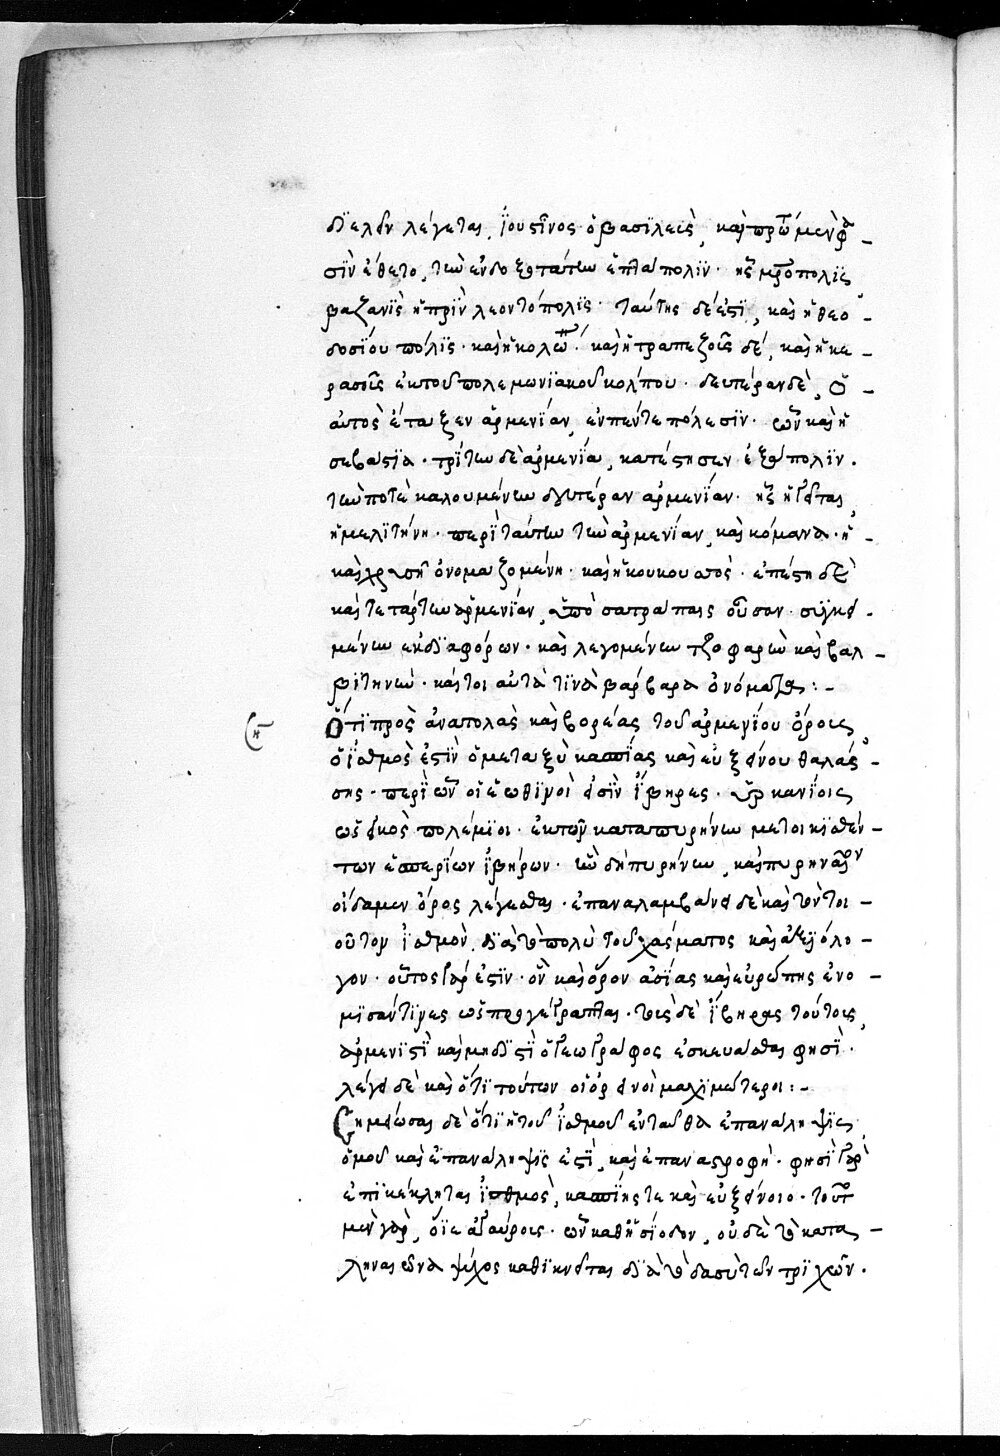 διελεῖν λέγεται ἰουστῖνος ὁ βασιλεύς, καὶ πρώτην μὲν φα-
σὶν ἔθετο, τὴν ἐνδοξοτάτην ἑπτάπολιν· ἧς μητρόπολις
βαζανὶς ἡ πρὶν λεοντόπολις· ταύτης δέ ἐστι, καὶ ἡ θεο-
δοσίου πόλις· καὶ ἡ κολώνεια· καὶ ἡ τραπεζοῦς δέ, καὶ ἡ κε-
ρασοῦς ἐκ τοῦ πολεμωνιακοῦ κόλπου· δευτέραν δὲ, ὁ
αὐτὸς ἔταξεν ἀρμενίαν, ἐν πέντε πόλεσιν· ὧν καὶ ἡ
σεβάστεια· τρίτην δὲ ἀρμενίαν, κατέστησεν ἑξάπολιν·
τὴν ποτὲ καλουμένην δευτέραν ἀρμενίαν· ἧς ἡγεῖται
ἡ μελιτηνή· περὶ ταύτην τὴν ἀρμενίαν, καὶ κόμανα· ἡ
καὶ χρυσῆ ὀνομαζομένη· καὶ ἡ κουκουσός· ἐπέστη δὲ
καὶ τετάρτην ἀρμενίαν, ὑπὸ σατράπαις οὖσαν· συγκει-
μένην ἐκ διαφόρων· καὶ λεγομένην τζοφαρὼν καὶ βαλ-
βιτηνών· καίτοι αὐτὰ τινὰ βάρβαρα ὀνόματα:-
Ὅτι πρὸς ἀνατολὰς καὶ βορέας τοῦ ἀρμενίου ὄρους,
ὁ ἰσθμὸς ἐστὶν ὁ μεταξὺ κασπίας καὶ εὐξείνου θαλάσ-
σης· περὶ ὧν οἱ ἑωθινοὶ εἰσὶν ἴβηρες· ὑρκανίοις
ὡς εἰκὸς πολέμιοι· ἐκ τῶν κατὰ πυρήνην μετοικισθέν-
των ἑσπερίων ἰβήρων· ἣν δὴ πυρήνην, καὶ πυρηναῖον
οἴδαμεν ὄρος λέγεσθαι· ἐπαναλαμβάνει δὲ καὶ τὸν τοι-
οῦτον ἰσθμὸν, διὰ τὸ πολὺ τοῦ χάσματος καὶ ἀξιόλο-
γον· οὗτος γάρ ἐστιν· ὃν καὶ ὅρον ἀσίας καὶ εὐρώπης ἐνό-
μισάν τινες ὡς προγέγραπται· τοὺς δὲ ἴβηρας τούτους,
ἀρμενιστὶ καὶ μηδιστὶ ὁ γεωγράφος ἐσκευάσθαι φησί·
λέγει δὲ καὶ ὅτι τούτων οἱ ὀρεινοὶ μαχιμώτεροι:-
Σημείωσαι δὲ ὅτι ἡ τοῦ ἰσθμοῦ ἐνταῦθα ἐπανάληψις,
ὁμοῦ καὶ ἐπανάληψις ἐστὶ, καὶ ἐπαναστροφή· φησὶ γὰρ
ἐπικέκληται ἰσθμὸς, κασπίης τε καὶ εὐξείνοιο· τοῦτο
μὲν γὰρ, ὅιε ἀγαύρους· ὧν καθ' ἡσίοδον, οὐδὲ τὸ κατὰ
ληναιῶνα ψῦχος καθικνεῖται διὰ τὸ δασὺ τῶν τριχῶν·